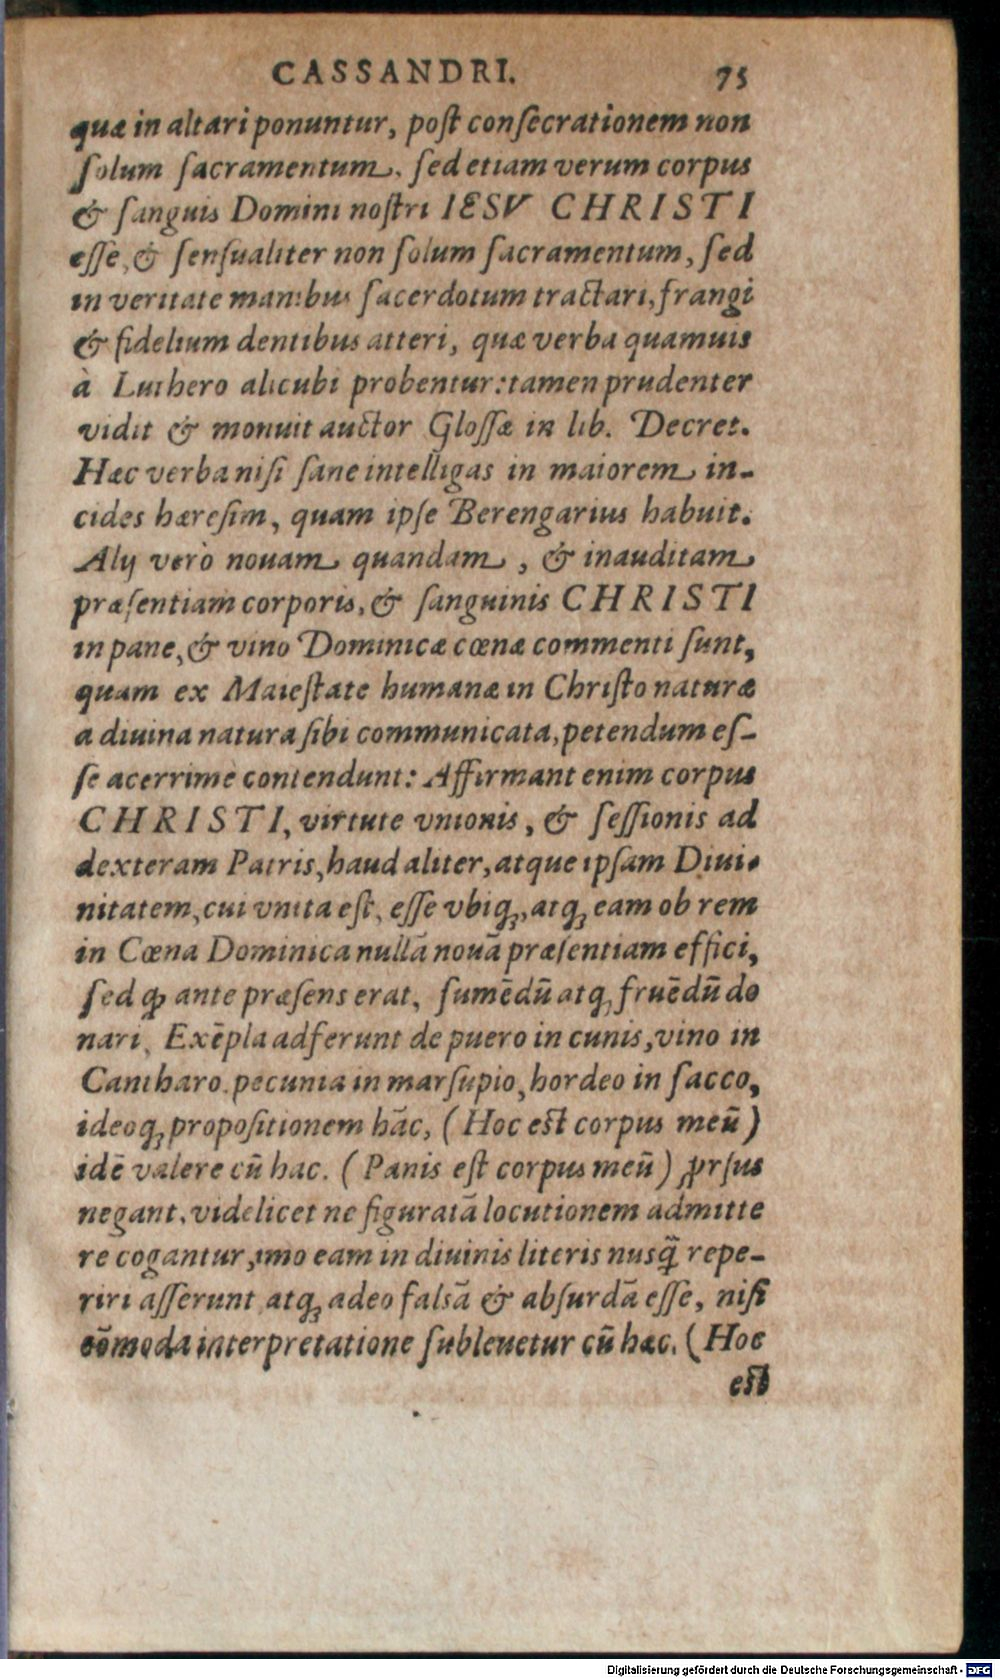 CASSANDRI. 75
quæ in altari ponuntur, poſt conſecrationem non
ſolum ſacramentum, ſed etiam verum corpus
& ſanguis Domini noſtri IESV CHRISTI
eſſe, & ſenſualiter non ſolum ſacramentum, ſed
in veritate manibus ſacerdotum tractari, frangi
& fidelium dentibus atteri, quæ verba quamuis
à Luthero alicubi probentur: tamen prudenter
vidit & monuit auctor Gloſſæ in lib. Decret.
Hæc verba niſi ſane intelligas in maiorem in-
cides hæreſim, quam ipſe Berengarius habuit.
Alij verò nouam quandam, & inauditam
præſentiam corporis, & ſanguinis CHRISTI
in pane, & vino Dominicæ cœnæ commenti ſunt,
quam ex Maieſtate humanæ in Chriſto naturæ
a diuina natura ſibi communicata, petendum eſ-
ſe acerrime contendunt: Affirmant enim corpus
CHRISTI, virtute vnionis, & ſeſſionis ad
dexteram Patris, haud aliter, atque ipſam Diui-
nitatem, cui vnita eſt, eſſe vbiq́;, atq́; eam ob rem
in Cœna Dominica nullā nouā præſentiam effici,
ſed qꝫ ante præſens erat, ſumēdū atq́; fruēdū do
nari, Exēpla adferunt de puero in cunis, vino in
Cantharo. pecunia in marſupio, hordeo in ſacco,
ideoq́; propoſitionem hāc, (Hoc eſt corpus meū)
idē valere cū hac. (Panis eſt corpus meū) ꝓrſus
negant, videlicet ne figuratā locutionem admitte
re cogantur, imo eam in diuinis literis nusq̄ repe-
riri aſſerunt atq́; adeo falsā & abſurdā eſſe, niſi
cōmoda interpretatione ſubleuetur cū hæc. (Hoc
eſt
Digitalisierung gefördert durch die Deutsche Forschungsgemeinschaft - DFG